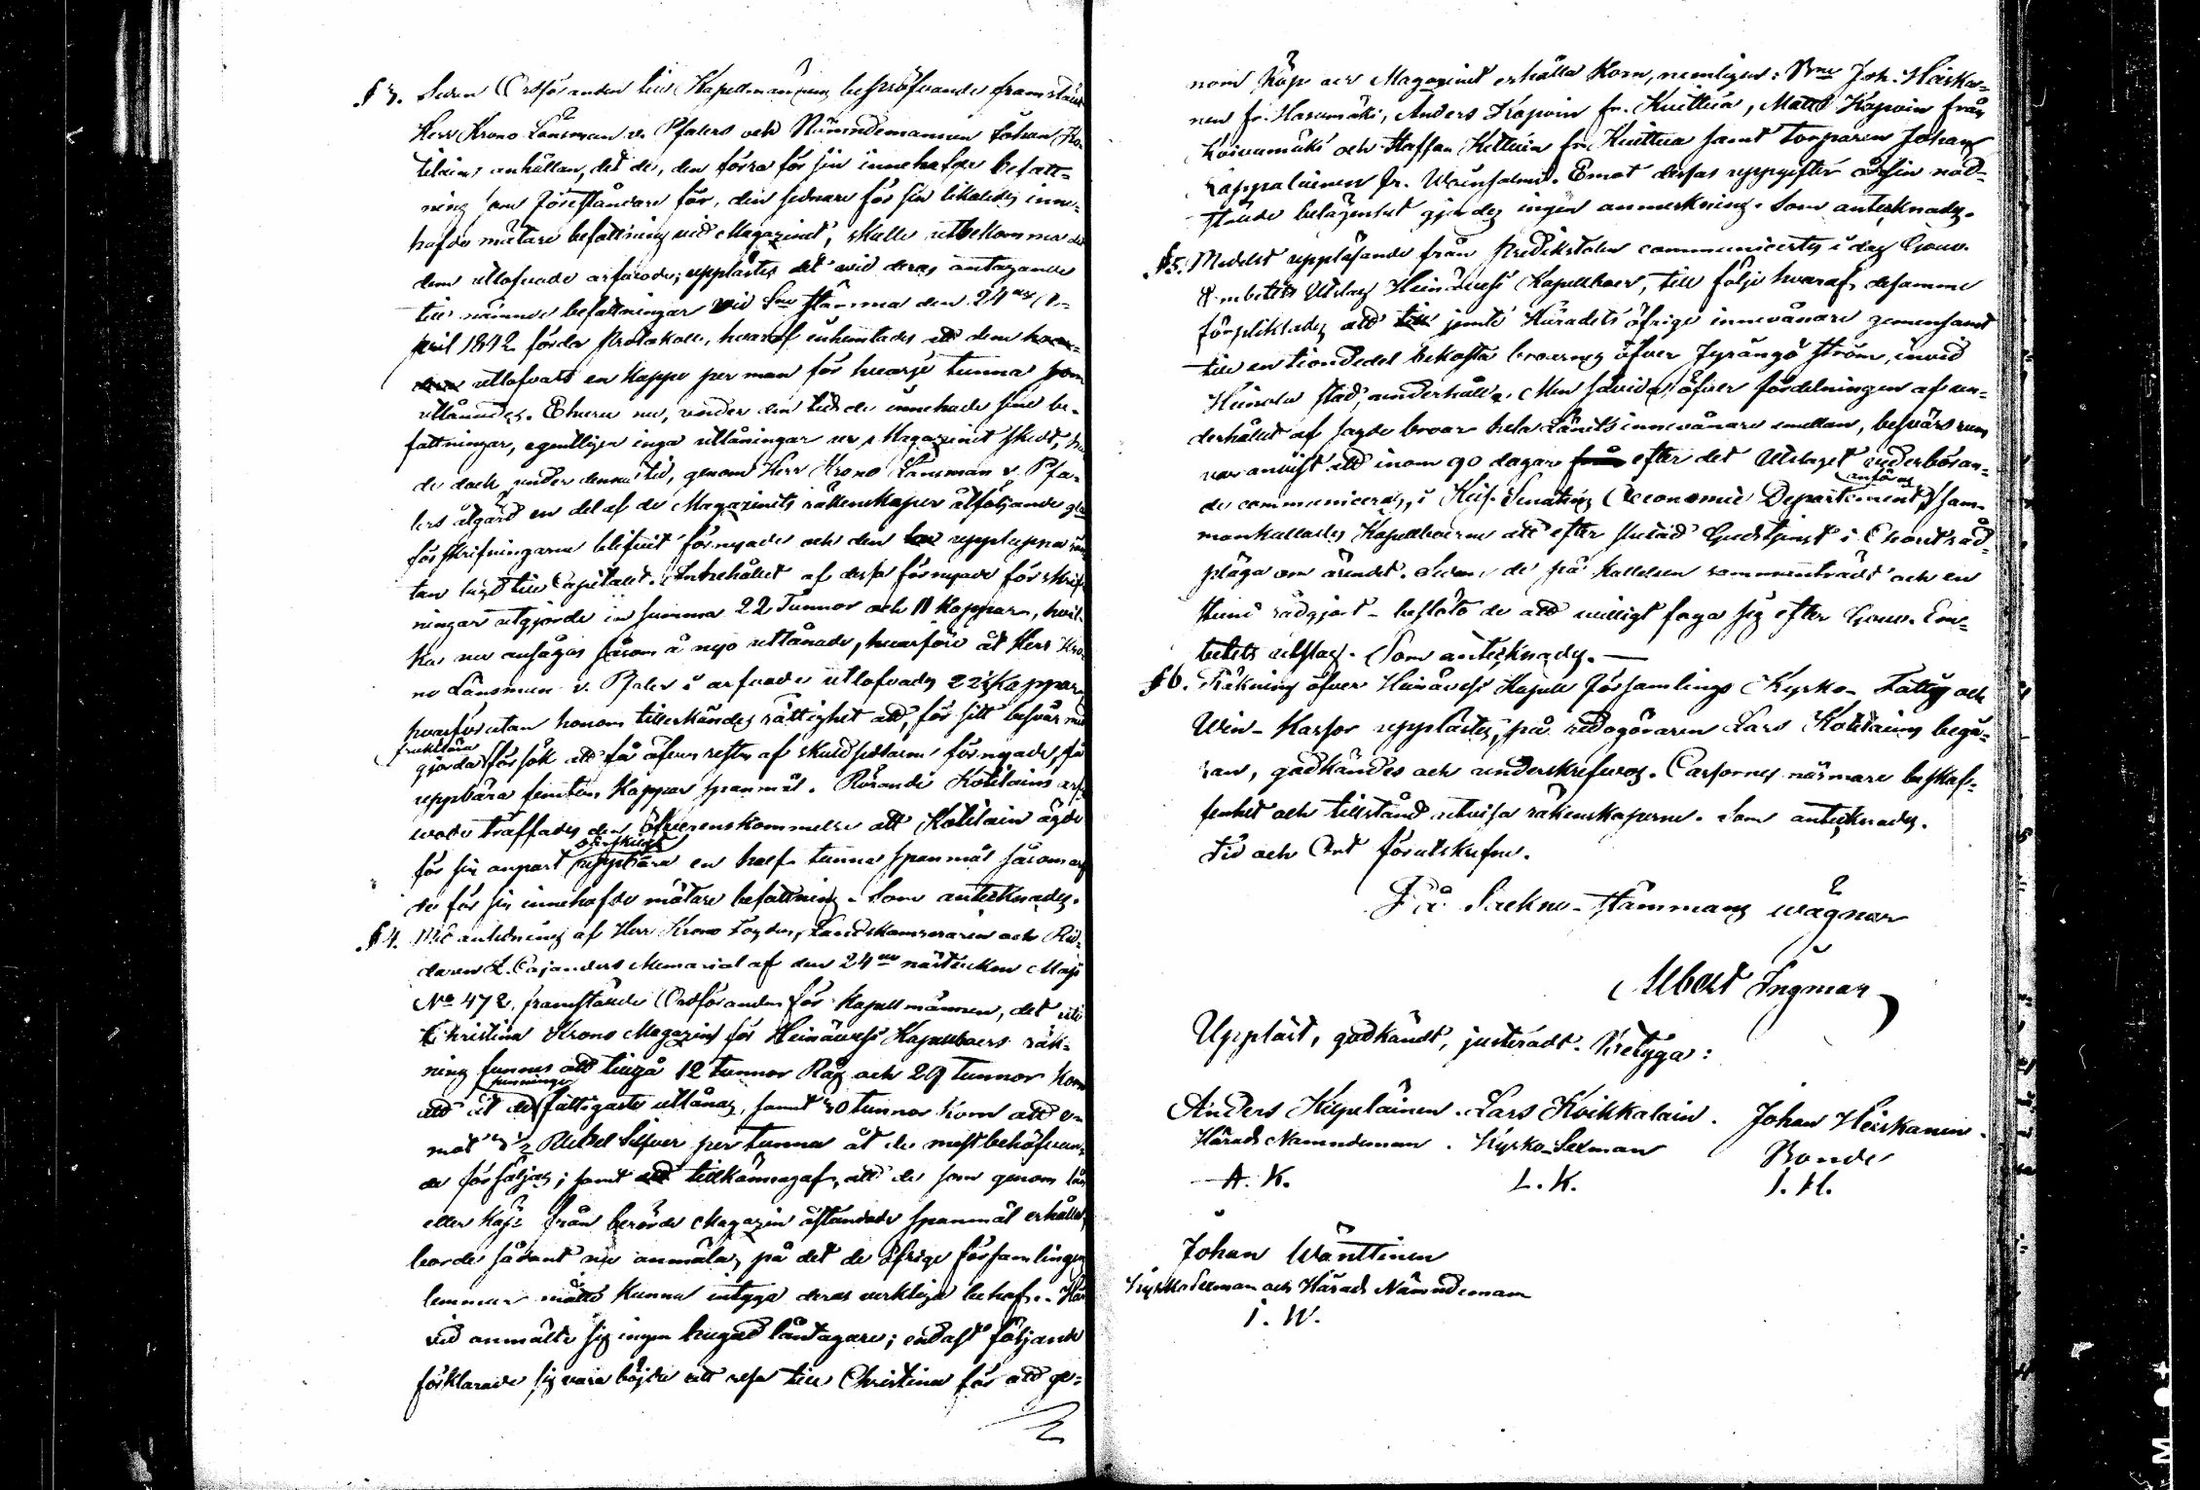 § 3. Sedan Ordföranden till Kapellmännens bepröfvande framstält
Herr Krono Länsman v. Pfalers och Nämndemannen Johan Ko-
tilains anhållan, det de, den förra för sin innehafde befatt-
ning som föreståndare för, den sednare för sin likaledes inne-
hafde mätare befattning vid Magazinet, skulle utbekomma de
dem utlofvade arfvode; upplästes det vid deras antagande
till nämnde befattningar vid Sne stämma den 24 A-
pril 1842 förda Protokoll, hvaraf inhemtades att dem
utlofvats en kappe per man för hvarje tunna som
utlånades. Ehuru nu, under den tid de innehade sine be-
fattningar, egentliga inga utlåningar ur Magazinet skedt,
de dock under denna tid, genom Herr Krono Länsman v. Pfa-
lers åtgärd en del af de Magazinets räkenskaper åtföljande
förskrifningarne blifvit förnyade och den upplupna rän
tan lagd till Capitalet. Innehållet af dessa förnyade förskrif
ningar utgjorde in summa 22 Tunnor och 11 Kappar, hvil-
ka nu ansågos såsom å nyo utlånade, hvarföre åt Herr Kro-
no Länsman v. Pfaler i arfvode utlofvades 22½ Kappar,
hvarförutan honom tillerkändes rättighet att, för sitt besvär med
fruktlösa
gjorda försök att få äfven resten af skuldsedlarne förnyade, få
uppbära femton Kappar spanmål. Rörande Kotilains arf-
vode träffades den öfverenskommelse att Kotilain ägde
särskildt
för sin anpart uppbära en half tunna spanmål såsom arf
de för sin innehafde mätare befattning. Som antecknades.
§ 4. Med anledning af Herr Krono Fogden, Landskamreraren och Rid-
daren L. Cajanders Memorial af den 24 nästvikne Maji
No 472, framstälde Ordföranden för Kapellmännen, det uti
Christina Krono Magazin för Heinävesi Kapellboers räk-
ning funnes att tillgå 12 tunnor Råg och 29 Tunnor Korn
att åt de fattigaste utlånas, samt 30 tunnor Korn att e-
mot 3½ Rubel Silfver per tunna åt de mest behöfvan-
de försäljas; samt tillkännagaf, att de som genom lån
eller köp från berörde Magazin åstundade spanmål erhålla,
borde sådant nu anmäla, på det de öfrige församlingens
lemmar måtte kunna intyga deras verkliga behof. Här
vid anmälte sig ingen hugad låntagare; endast följande
förklarade sig vara böjde att resa till Christina för att ge-
nom köp ur Magazinet erhålla Korn, nemligen: Bne Joh. Heiska-
nen fr. Hasumäki, Anders Kapain fr. Kuittua, Matts Kapain från
Koivumäki och Staffan Kettuin fr. Kuittua samt torparen Johan
Räppäläinen fr. Wainsalmi. Emot dessas uppgifter om sin nöd-
stälde belägenhet gjordes ingen anmerkning. Som antecknades.
§ 5. Medelst uppläsande från Predikstolen communicerades i dag Gouv.
Embetets Utslag Heinävesi Kapellboer, till följe hvaraf desamme
förpliktades att jemte Häradets öfrige innevånare gemensamt
till en tiondedel bekosta broarnes öfver Jyrängö ström, invid
Heinola stad, underhåll. Men såvida öfver fördelningen af un-
derhållet af sagde broar hela Länets innevånare emellan, besvärsrum
var anvist att inom 90 dagar efter det Utslaget vederböran-
anföras
de communicerats, i Keis. Senatens Oeconomie Departement, sam-
mankallades Kapellboerne att efter slutad Gudstjenst i Choret råd-
pläga om ärendet. Sedan de på kallelsen sammanträdt och en
stund rådgjort - beslöto de att villigt foga sig efter Gouv. Em-
betets utslag. Som antecknades.
§ 6. Räkning öfver Heinävesi Kapell Församlings Kyrko- Fattig och
Win-Kassor upplästes, på redogöraren Lars Kotilains begä-
ran, godkändes och underskrefvos. Cassornes närmare beskaf-
fenhet och tillstånd utvisa räkenskaperne. Som antecknades.
Tid och Ort förutskrefne.
På Sockne-stämmans wägnar
Albert Ingman
Uppläst, godkändt, justeradt. Betyga:
Anders Kilpeläinen. Lars Koikkalain. Johan Heiskanen.
Härads Nämndeman. Kyrko-Sexman Bonde
A. K. L. K. J. H.
Johan Wänttinen
Kyrko Sexman och Härads Nämndeman
J. W.